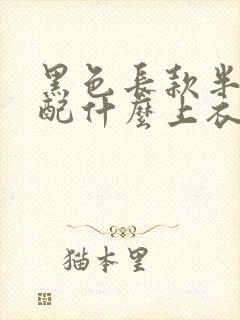 黑色長款半
配什麼上衣
猫本里